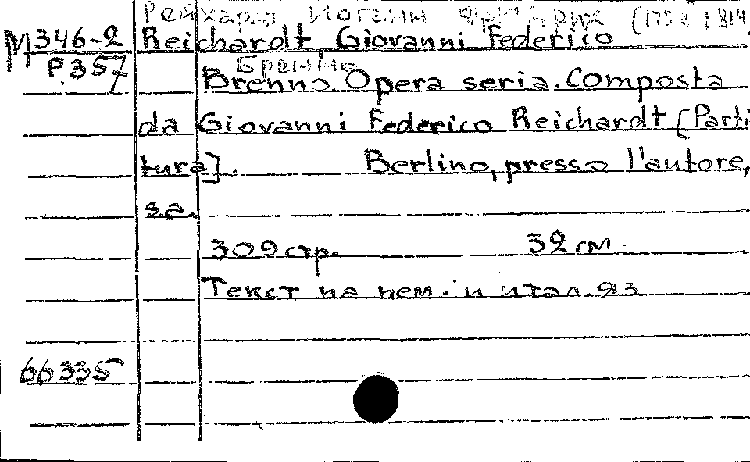 Рейхардт Иоганн Фридрих (1752 1814
М 346-2 Reichardt, Giovanni Federico
Р357 Бренно
Brenno. Opera seria. Composta
da Giovanni Federico Reichardt [Parti
tura]. Berlino, presso l'autore,
s.a.
309 стр. 32 см.
Текст на нем. и итал. яз
66335